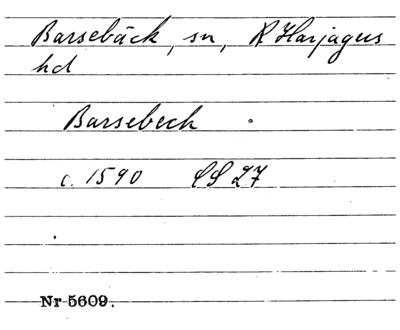 Barsebäck, sn, R Harjagers
hd
Barsebeck
c. 1590 LS 27
Nr 5609.